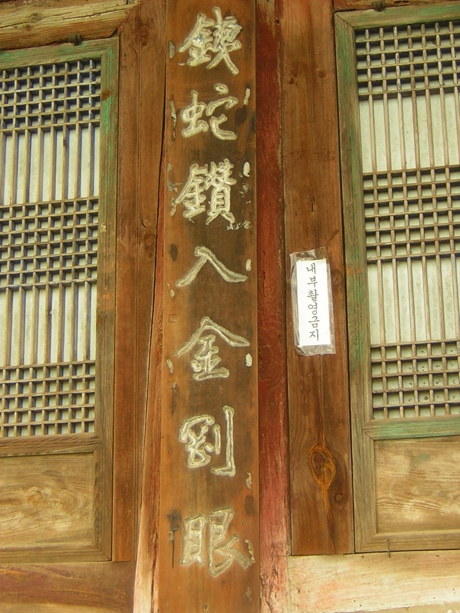 銕蛇鑽入金剛眼
내부촬영금지